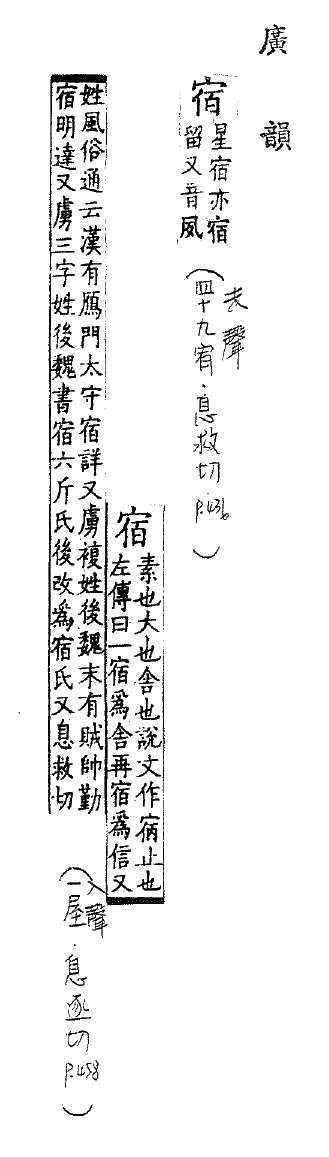 廣韻
宿
星宿亦宿
留又音夙
(去聲
四十九宥·息救切 P.436)
宿
素也大也舍也說文作㝛止也
左傳曰一宿為舍再宿為信又
姓風俗通云漢有鴈門太守宿詳又虜複姓後魏末有賊帥勤
宿明達又虜三字姓後魏書宿六斤氏後改為宿氏又息救切
(入聲
一屋·息逐切 P.458)